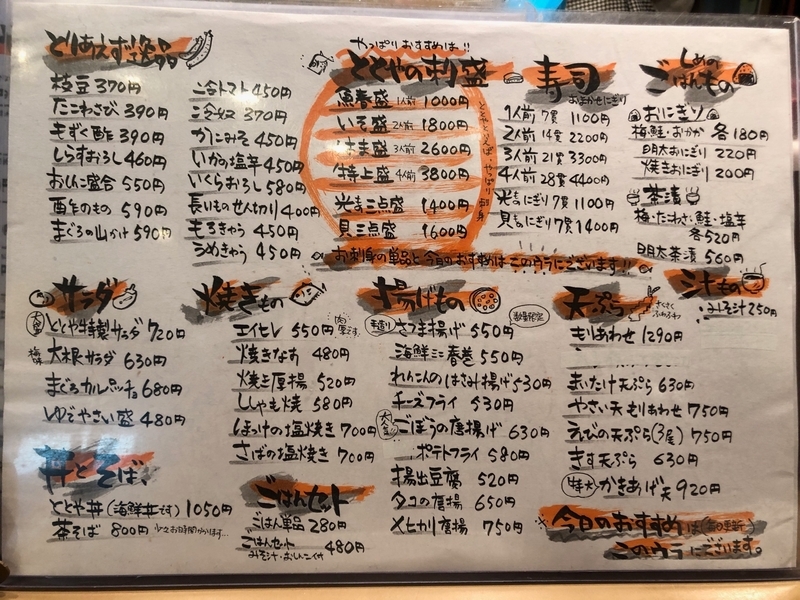 とりあえず逸品
枝豆 370円
たこわさび 390円
もずく酢 390円
しらすおろし 460円
おしんこ盛合 550円
酢のもの 590円
まぐろの山かけ 590円
冷トマト 450円
冷奴 370円
かにみそ 450円
いかの塩辛 450円
いくらおろし 580円
長いものせん切り 400円
もろきゅう 450円
うめきゅう 450円
やっぱりおすすめは!!
ととやの刺盛
魚春盛 1人前 1000円
いそ盛 2人前 1800円
はま盛 3人前 2600円
特上盛 4人前 3800円
光もの三点盛 1400円
貝三点盛 1600円
ととやといえば やっぱり刺身
お刺身の単品と今日のおすすめはこのウラにございます!!
寿司
おまかせにぎり
1人前 7貫 1100円
2人前 14貫 2200円
3人前 21貫 3300円
4人前 28貫 4400円
光ものにぎり7貫 1100円
貝ものにぎり7貫 1400円
しめの
ごはんもの
おにぎり
梅・鮭・おかか 各180円
明太おにぎり 220円
焼きおにぎり 200円
茶漬
梅・たわさ・鮭・塩辛
各520円
明太茶漬 560円
汁もの
みそ汁 250円
サラダ
大盛 ととや特製サラダ 720円
梅味 大根サラダ 630円
まぐろカルパッチョ 680円
ゆでやさい盛 480円
丼とそば、
ととや丼(海鮮丼です) 1050円
茶そば 800円 少々お時間かかります…
焼きもの
エイヒレ 550円 肉厚です
焼きなす 480円
焼き厚揚 520円
ししゃも焼 580円
ほっけの塩焼き 700円
さばの塩焼き 700円
ごはんセット
ごはん単品 280円
ごはんセット 480円
みそ汁・おしんこ付
揚げもの
手造り さつま揚げ 550円
数量限定
海鮮ミニ春巻 550円
れんこんのはさみ揚げ 530円
チーズフライ 530円
大人気 ごぼうの唐揚げ 630円
ポテトフライ 580円
揚出豆腐 520円
タコの唐揚 650円
メヒカリ唐揚 750円
天ぷら
さくさく
ふわふわ
もりあわせ 1290円
まいたけ天ぷら 630円
やさい天もりあわせ 750円
えびの天ぷら(3尾) 750円
きす天ぷら 630円
特大 かきあげ天 920円
※今日のおすすめは(毎日更新)
このウラにございます。